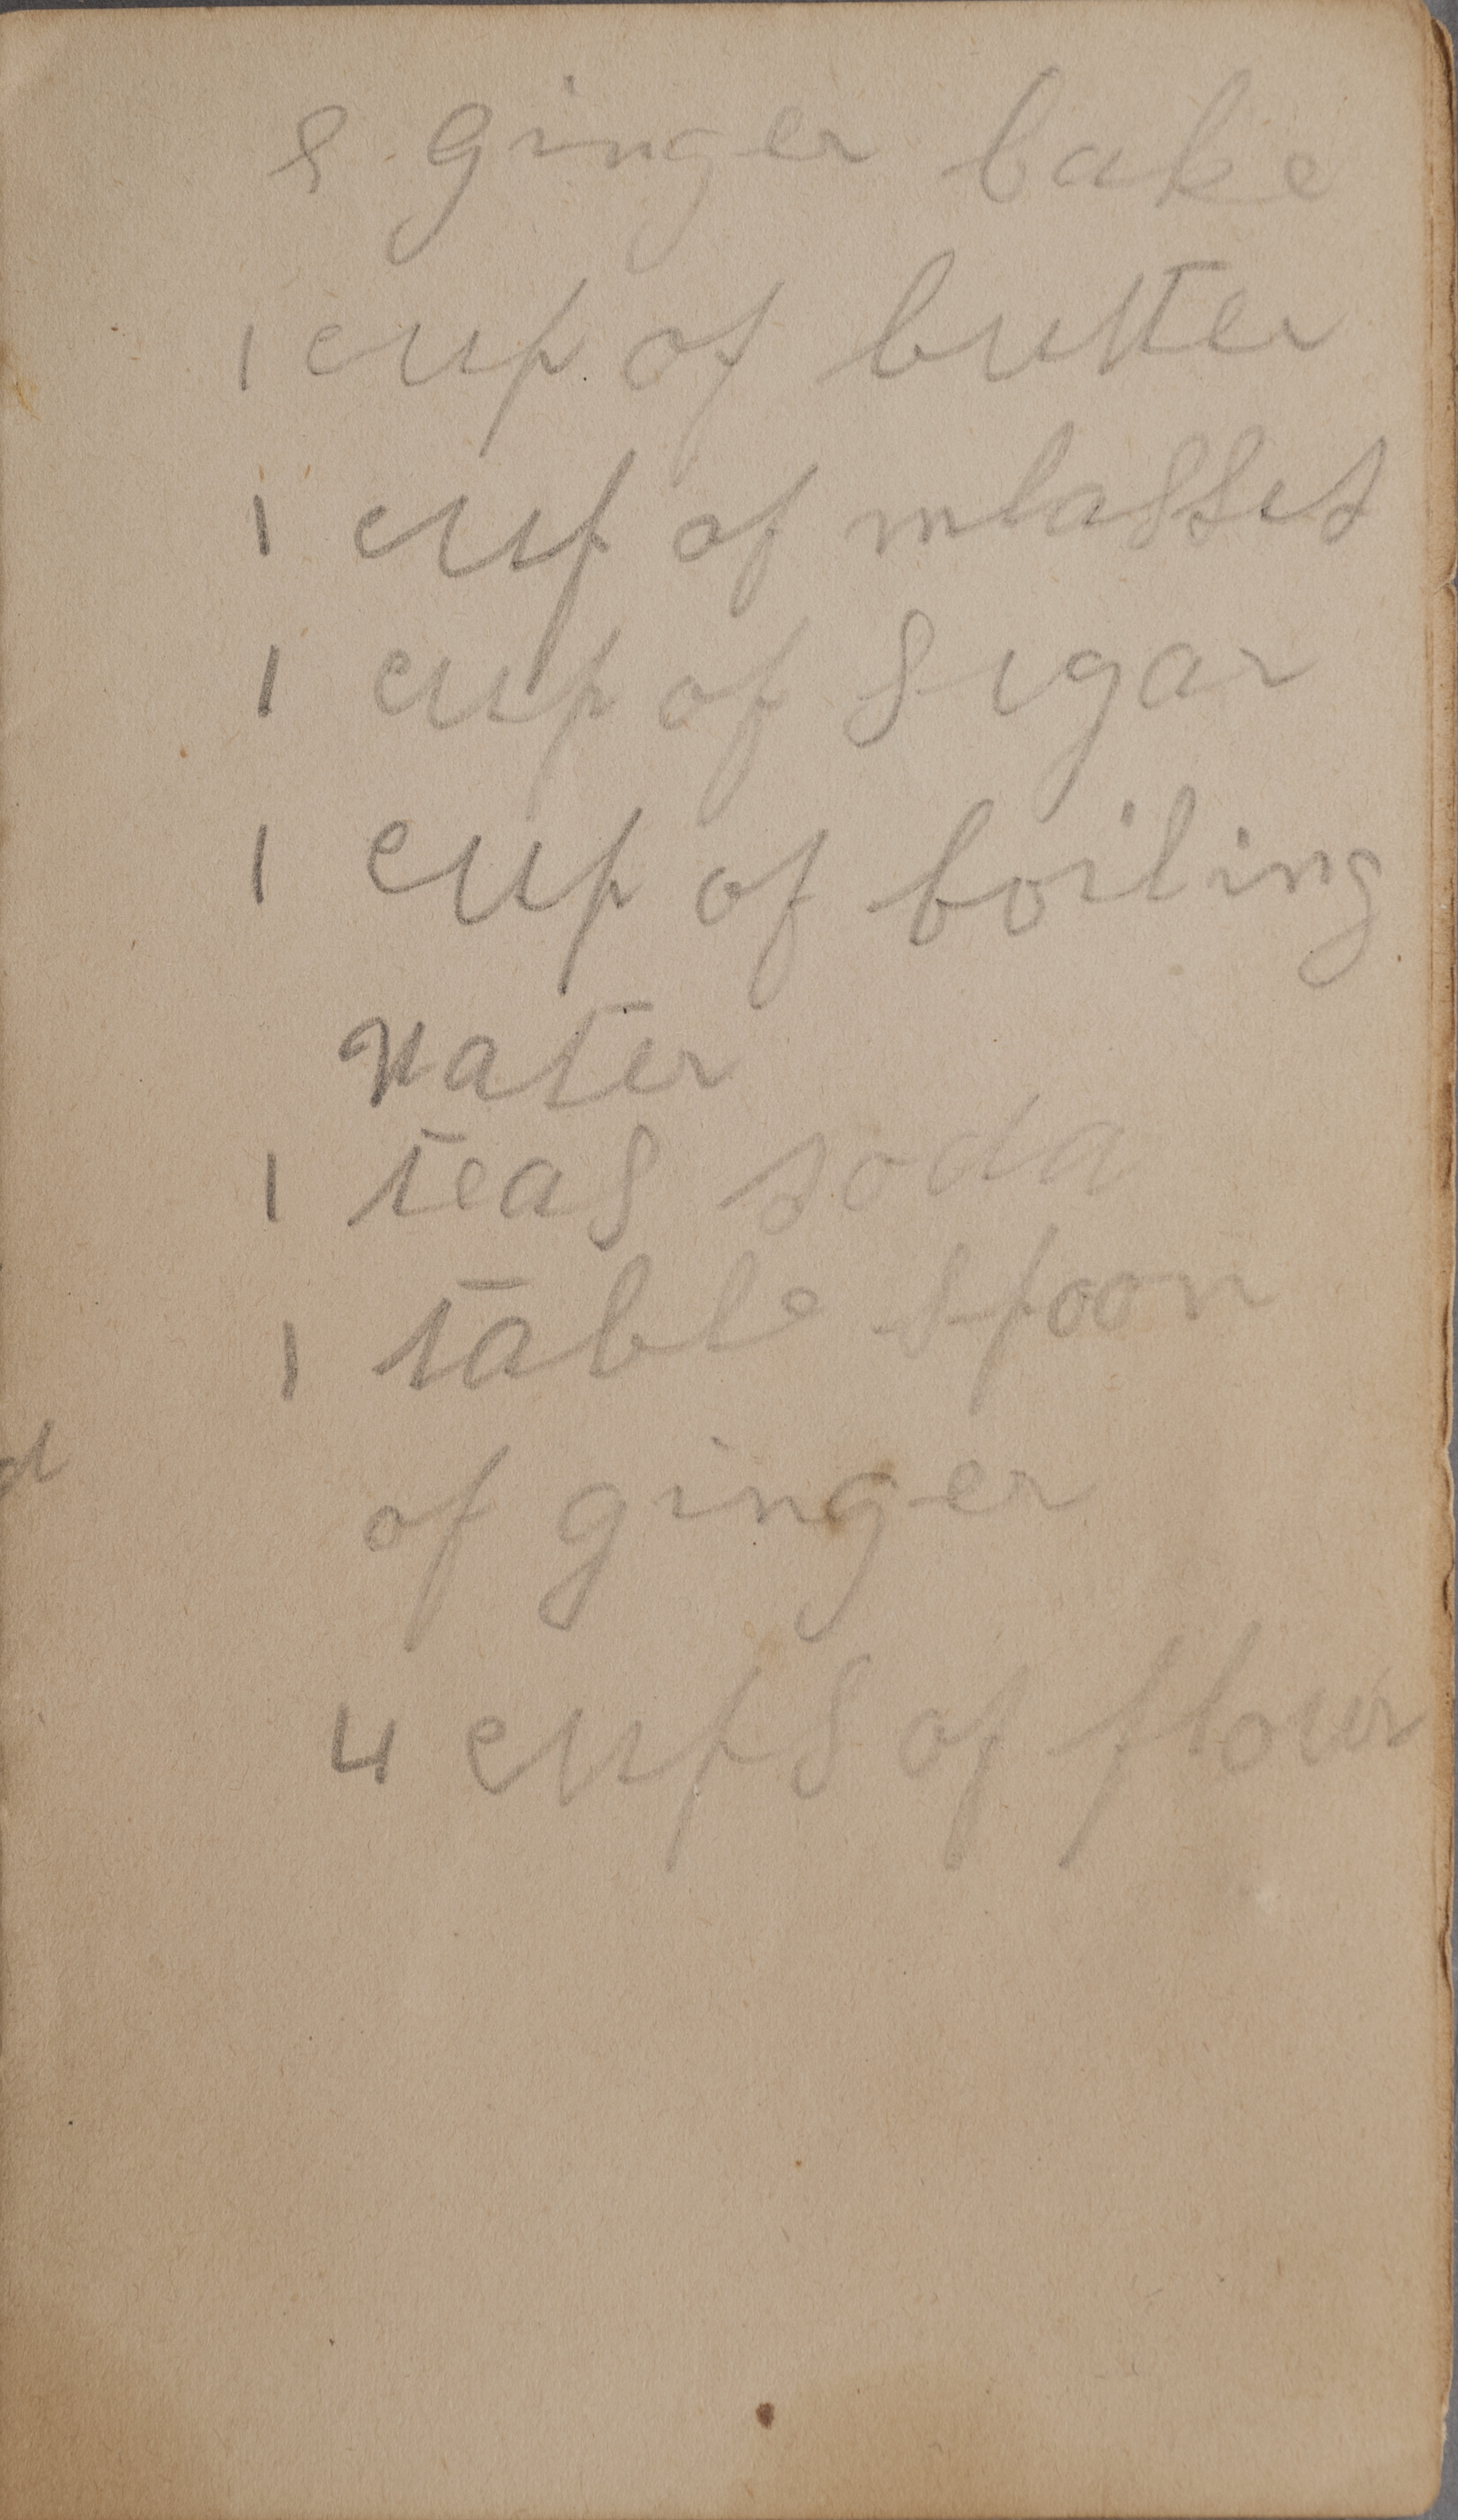 S ginger cake
1 cup of butter
1 cup of mlasses
1 cup of sugar
1 cup of boiling
water
1 teas soda
1 table spoon
of ginger
4 cups of flour